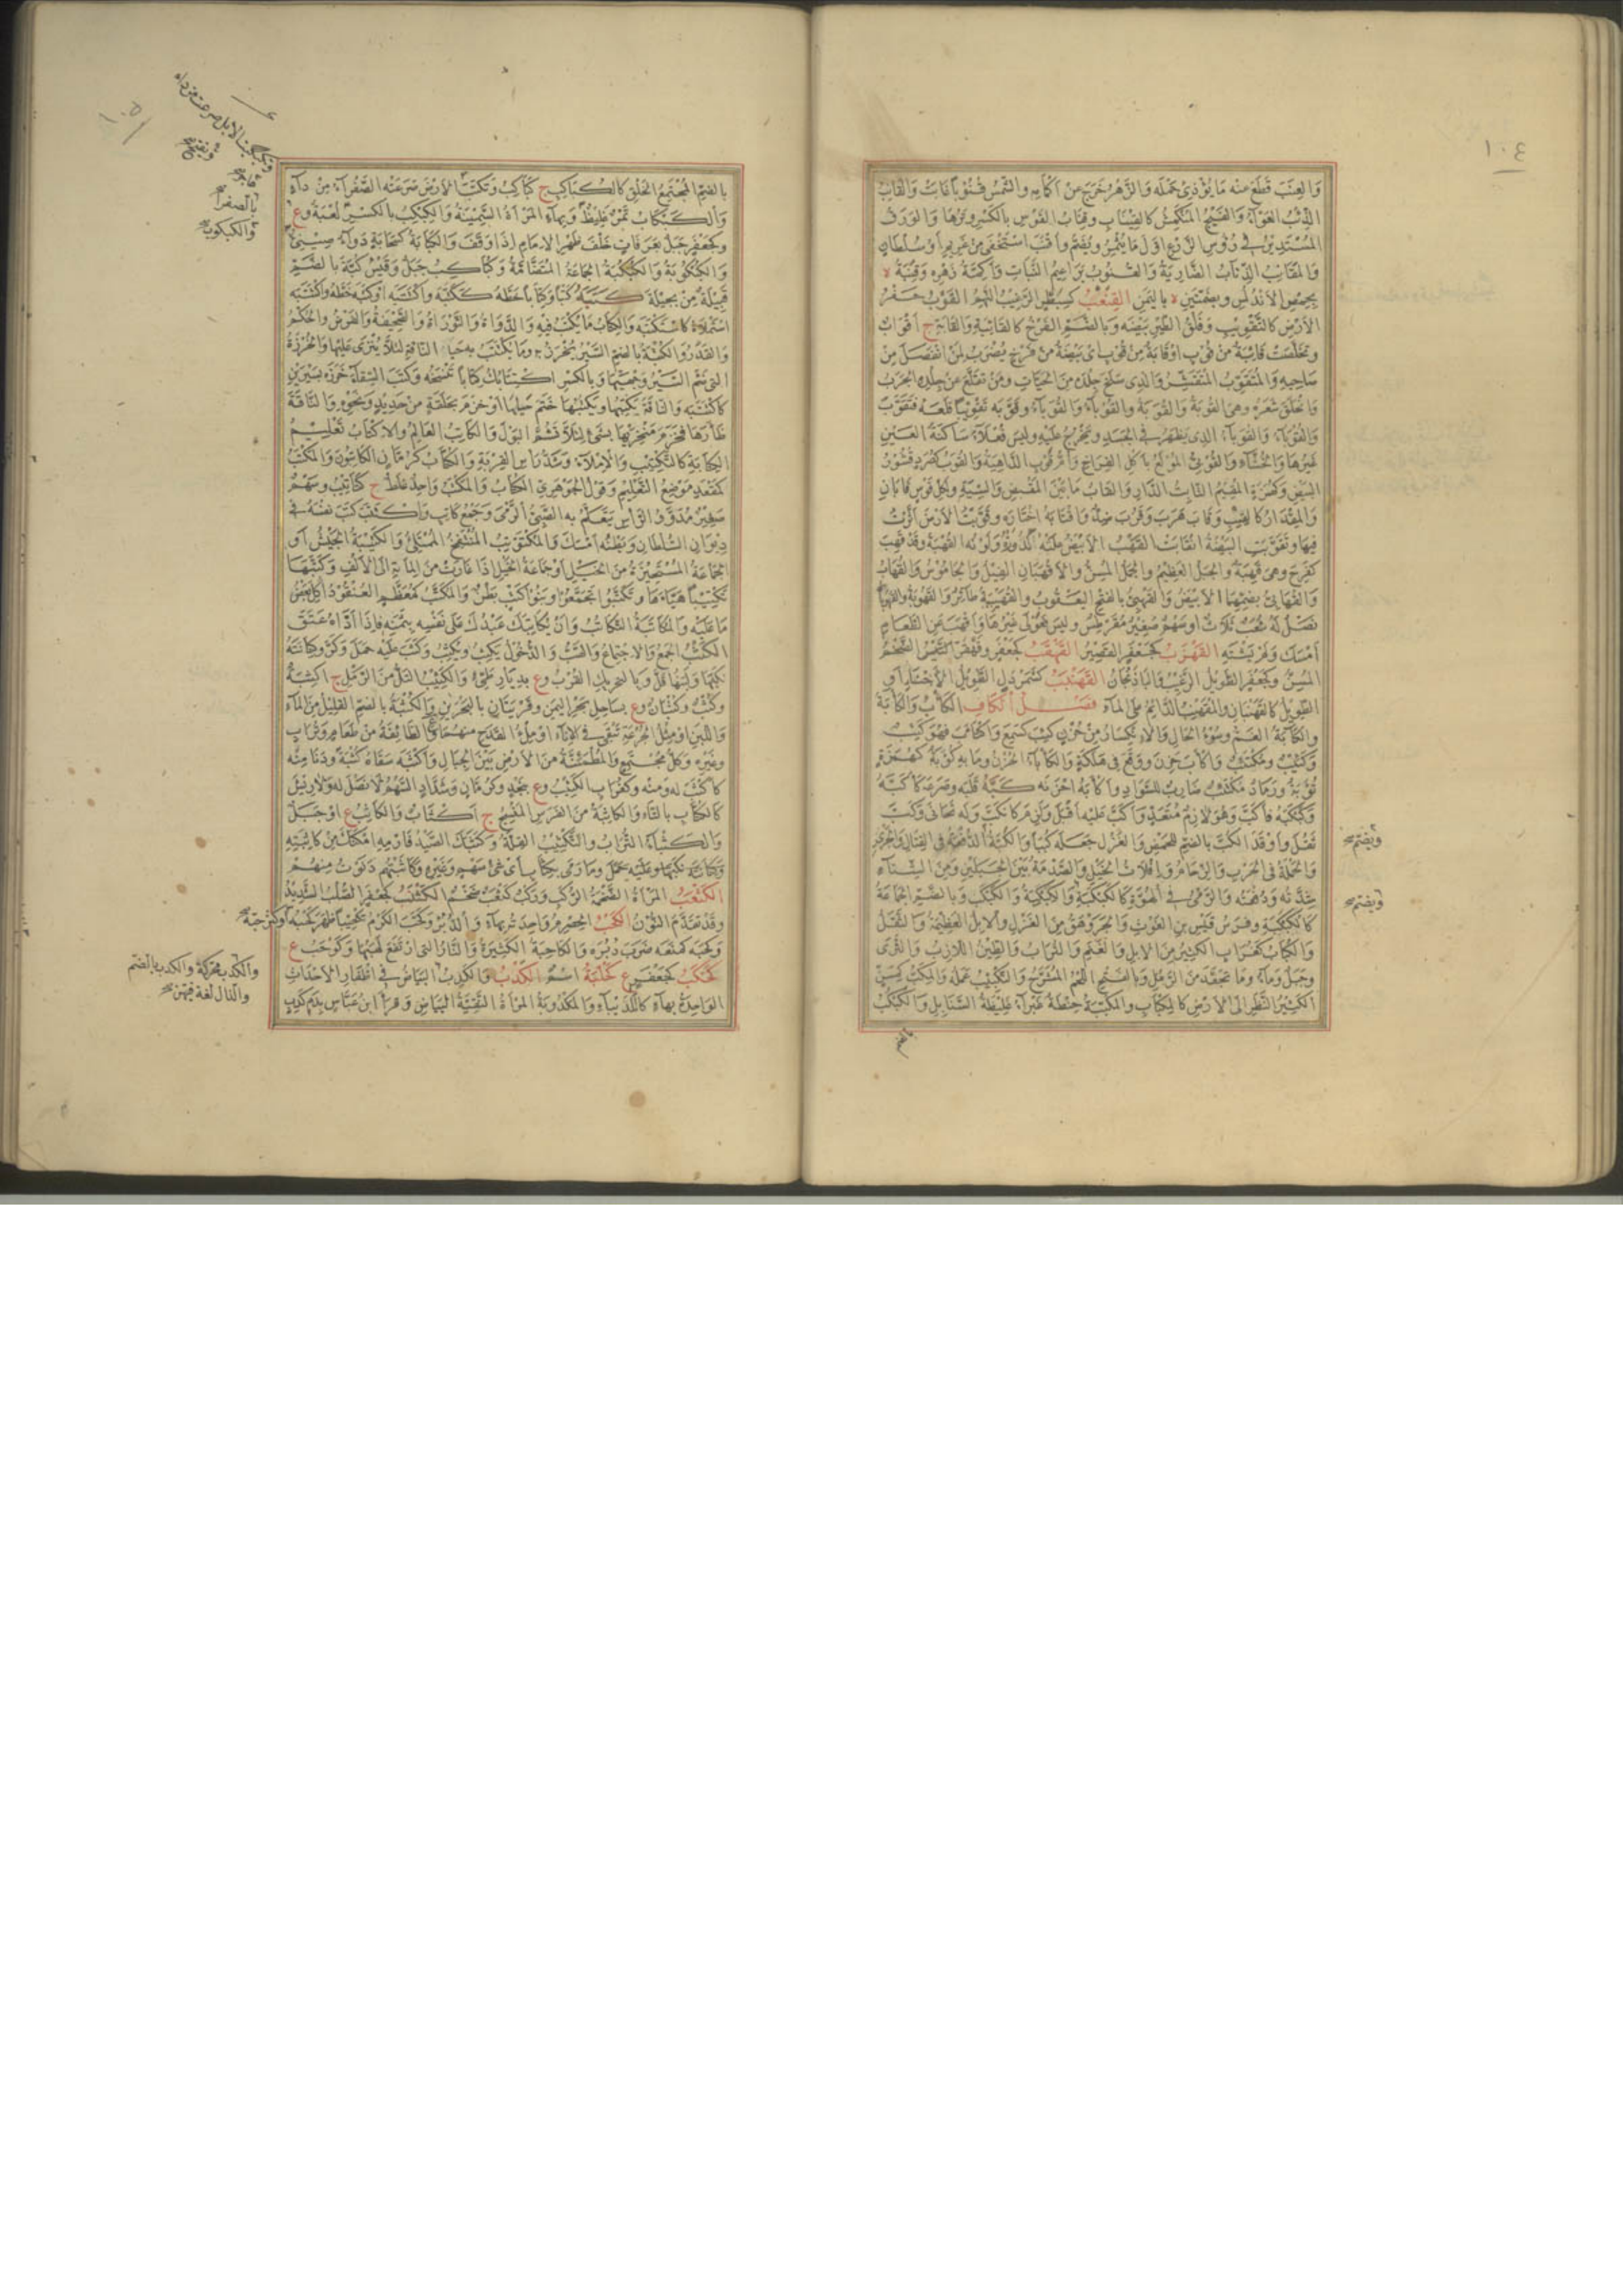 ١٠٤
وَالعِنَبَ قَطَعَ عنْه مَا يُؤْذِى حَمْلَه وَالزَّهْرُ خَرَجَ عن اَكْمَامِه والشَّمْسُ قُنُوبًا غَابَتْ وَالقَانِبُ
الذِّئْبُ العَوَّاءُ وَالفَيْجُ المُنْكَمِشُ كالقَيْنَابِ وقِنَابُ القَوْسِ بالكَسْرِ وَتَرُهَا وَالوَرَقُ
المُسْتَدِيْرُ فى رُؤُسِ الزَّرْعِ اَوَّلَ مَا يُثْمِرُ ويُضَمُّ وَاَقْنَبَ اسْتَخْفَى مِنْ غَرِيمٍ اَوْ سُلْطَانٍ
وَالمَقَانِبُ الذِّئَابُ الضَّارِيَةُ وَالقُنُوبُ بَرَاعِيْمُ النَّبَاتِ وَاَكِمَّةُ زَهْرِه وَقِنَّبَةُ ة
بحِمْصِ الاَنْدُلُسِ وبضَمَّتَيْنِ ة باليَمَنِ القِنْعَبُ كسِبَطْرٍ الرَّغِيْبُ النَّهِمُ القَوْبُ حَفْرُ
الاَرْضِ كالتَّقْوِيْبِ وَفَلْقُ الطَّيْرِ بَيْضَه وَبالضَّمِّ الفَرْخُ كالقَائِبَةِ وَالقَابَةِ ج اَقْوَابٌ
وتَخَلَّصَتْ قَائِبَةٌ مِنْ قُوْبٍ اَوْ قَابَةٌ مِنْ قُوْبٍ اى بَيْضَةٌ مِنْ فَرْخٍ يُضْرَبُ لِمَنْ انْفَصَلَ مِنْ
صَاحِبِهِ وَالمُتَقَوِّبُ المُتَقَشِّرُ وَالذى سَلَخَ جِلْدَه مِنَ الحَيَّاتِ ومَنْ تَقَلَّعَ عَنْ جِلْدِهِ الجَرَبُ
وَانْحَلَقَ شَعْرُهُ وهى القُوْبَةُ وَالقُوَبَةُ والقُوْبَاءُ وَالقُوَبَاءُ وقَوَّبَه تَقْوِيْبًا قَلَعَهُ فتَقَوَّبَ
وَالقُوَبَاءُ وَالقُوْبَاءُ الذى يَظْهَرُ فى الجَسَدِ ويَخْرُجُ عَلَيْهِ وليسَ فُعْلَاءُ سَاكنَةُ العَيْنِ
غَيْرَهَا وَالخُشَّاءِ وَالقُوْبِىُّ المُوْلَعُ بِاَكْلِ الفِرَاخِ وَاُمُّ قُوْبٍ الدَّاهِيَةُ وَالقُوَبُ كصُرَدٍ قُشُوْرُ
البَيْضِ وَكهُمَزَةٍ المُقِيْمُ الثَّابِتُ الدَّارِ وَالقَابُ مَا بَيْنَ المَقْبِضِ وَالسِّيَةِ ولكُلِّ قَوْسٍ قَابَانِ
وَالمِقْدَارُ كالقِيْبِ وَقَابَ هَرَبَ وَقَرُبَ ضِدٌّ وَاقْتَابَهُ اخْتَارَه وقَوَّبْتُ الاَرْضَ اَثَّرْتُ
فيها وتَقَوَّبَتِ البَيْضَةُ انْقَابَتْ القَهْبُ الاَبْيَضُ عَلَتْهُ كُدُوْرَةٌ ولَوْنُهُ القُهْبَةُ وقَدْ قَهِبَ
كفَرِحَ وهى قَهِبَةٌ والجَبَلُ العَظِيْمُ والجَمَلُ المُسِنُّ والاَقْهَبَانِ الفِيْلُ وَالجَامُوْسُ وَالقُهَابُ
وَالقُهَابِىُّ بضَمِّهِمَا الاَبْيَضُ وَالقَهْبِىُّ بالفَتْحِ اليَعْقُوبُ والقُهَيْبَةُ طَائِرٌ وَالقَهُوْبَةُ والقَهُوْبَاةُ
نَصْلٌ لَهُ شُعَبٌ ثَلَاثٌ او سَهْمٌ صَغِيْرٌ مُقَرْطِسٌ وليسَ فَعُوْلَى غَيْرُهَا وَاَقْهَبَ عَنِ الطَّعَامِ
اَمْسَكَ وَلَمْ يَشْتَهِهِ القَهْزَبُ كجَعْفَرٍ القَصِيْرُ القَهْقَبُ كجَعْفَرٍ وقَهْقَرٍّ الضَّخْمُ
المُسِنُّ وكجَعْفَرٍ الطَّوِيْلُ الرَّغِيْبُ وَالبَاذَنْجَانُ القَهْنَبُ كشَمَرْدَلٍ الطَّوِيْلُ الاَجْنَاُ او
الطَّوِيْلُ كالقَهْنَبَانِ والمُقَهْنِبُ الدَّائِمُ على المَاءِ فَصْلُ الْكَافِ الكَاْبُ وَالكَاْبَةُ
والكَآبَةُ الغَمُّ وسُوْءُ الحَالِ وَالانْكِسَارُ مِنْ حُزْنٍ كَئِبَ كسَمِعَ وَاكْتَاَبَ فهوَ كَئِبٌ
وَكَئِيْبٌ ومُكْتَئِبٌ وَاَكْاَبَ حَزِنَ ووَقَعَ فى هَلَكَةٍ وَالكَأْبَاءُ الحُزْنُ ومَا بِهِ كُؤَبَةٌ كهُمَزَةٍ
تُؤَبَةٌ ورَمَادٌ مُكْتَئِبٌ ضَارِبٌ للسَّوَادِ وَاَكْاَبَهُ اَحْزَنَه كَبَّهُ قَلَبَه وصَرَعَه كاَكَبَّهُ
وَكَبْكَبَهُ فاَكَبَّ وَهُوَ لَازِمٌ مُتَعَدٍّ وَاَكَبَّ عَلَيْهِ اَقْبَلَ وَلَزِمَ كانْكَبَّ وَلَه تَحَانَى وَكَبَّ
ثَقُلَ وَاَوْقَدَ الكُبَّ بالضَّمِّ للحَمْضِ وَالغَزْلَ جَعَلَه كُبَبًا وَالكَبَّةُ الدَّفْعَةُ فى القِتَالِ وَالجَرْىِ
وَالحَمْلَةُ فى الحَرْبِ وَالزِّحَامُ وَافْلَاتُ الخَيْلِ وَالصَّدْمَةُ بَيْنَ الجَبَلَيْنِ ومِنَ الشِّتَاءِ
شِدَّتُه وَدُفْعَتُه وَالرَّمْىُ فى الهُوَّةِ كالكَبْكَبَةِ وَالكِبْكِبَةِ وَالكَبْكَبِ وَبالضَّمِّ الجَمَاعَةُ
كالكَبْكَبَةِ وفَرَسُ قَيْسِ بنِ الغَوْثِ وَالجَرَوْهَقُ مِنَ الغَزْلِ والاِبِلُ العَظِيْمَةُ وَالثِّقْلُ
وَالكُبَابُ كغُرَابٍ الكَثِيْرُ مِنَ الاِبِلِ وَالغَنَمِ وَالتُّرَابُ وَالطِّيْنُ اللَّازِبُ وَالثَّرَى
وجَبَلٌ وَمَاءٌ وَمَا تَجَعَّدَ مِنَ الرَّمْلِ وبِالفَتْحِ اللَّحْمُ المُشَرَّحُ وَالتَّكْبِيْبُ عَمَلُه وَالمِكَبُّ كمِسَنٍّ
الكَثِيْرُ النَّظَرِ الَى الاَرْضِ كالمِكْبَابِ والمُكَبَّبَةُ حِنْطَةٌ غَبْرَاءُ غَلِيْظَةُ السَّنَابِلِ وَالكَبْكَبُ
بالضم
ويضم صح
ويضم صح
١٠٥
بالضَّمِّ المُجْتَمِعُ الخَلْقِ كالكُبَاكِبِ ج كَبَاكِبُ وتَكَبَّبَ
وَالكَبْكَابُ تَمْرٌ غَلِيْظٌ وَبِهَاءٍ المَرْاَةُ السَّمِيْنَةُ وَالكِبْكِبُ بالكَسْرِ لُعْبَةٌ وع
وكجَعْفَرٍ جَبَلٌ بعَرَفَاتٍ خَلْفَ ظَهْرِ الاِمَامِ اِذَا وَقَفَ وَالكَبَابَةُ كسَحَابَةٍ دَوَاءٌ صِيْنِىٌّ
وَالكُبْكُوْبَةُ وَالكَبْكَبَةُ الجَمَاعَةُ المُتَضَامَّةُ وكُبَاكِبُ جَبَلٌ وقَيْسُ كُبَّةَ بالضَّمِّ
قَبِيْلَةٌ مِنْ بَجِيْلَةَ كَتَبَهُ كَتْبًا وكِتَابًا خَطَّهُ ككَتَّبَه وَاكْتَتَبَه اَوْ كَتَبَه خَطَّهُ وَاكْتَتَبَه
اسْتَمْلَاهُ كاسْتَكْتَبَه وَالكِتَابُ مَا يُكْتَبُ فيْهِ وَالدَّوَاةُ وَالتَّوْرَاةُ وَالصَّحِيْفَةُ وَالفَرْضُ وَالحُكْمُ
وَالقَدَرُ وَالكُتْبَةُ بالضَّمِّ السَّيْرُ يُخْرَزُ به ومَا يُكْتَبُ بِه حَيَاءُ النَّاقَةِ لئَلَّا يُنْزَى عَلَيْهَا وَالخُرْزَةُ
التى ضَمَّ السَّيْرُ وَجْهَيْهَا وَبالكَسْرِ اكْتِتَابُكَ كِتَابًا تَنْسَخُه وكَتَبَ السِّقَاءَ خَرَزَه بسَيْرَيْنِ
كاكْتَتَبَه وَالنَّاقَةَ يَكْتِبُهَا ويَكْتُبُهَا خَتَمَ حَيَاءَهَا اَوْ خَزَمَ بحَلْقَةٍ مِنْ حَدِيْدٍ وَنَحْوِهِ وَالنَّاقَةَ
ظَاَرَهَا فخَزَمَ مَنْخِرَيْهَا بشَىْءٍ لئَلَّا تَشُمَّ البَوَّ وَالكَاتِبُ العَالِمُ والاِكْتَابُ تَعْلِيْمُ
الكِتَابَةِ كالتَّكْتِيْبِ وَالاِمْلَاءُ وَشَدُّ رَاسِ القِرْبَةِ وَالكُتَّابُ كرُمَّانٍ الكَاتِبُوْنَ وَالمَكْتَبُ
كمَقْعَدٍ مَوْضِعُ التَّعْلِيْمِ وَقَوْلُ الجَوْهَرِىِّ الكُتَّابُ وَالمَكْتَبُ وَاحِدٌ غَلَطٌ ج كَتَاتِيْبُ وسَهْمٌ
صَغِيْرٌ مُدَوَّرُ الرَّاْسِ يَتَعَلَّمُ بِه الصَّبِىُّ الرَّمْىَ وَجَمْعُ كَاتِبٍ وَاكْتَتَبَ كَتَبَ نَفْسَهُ فى
دِيْوَانِ السُّلْطَانِ وَبَطْنُه اَمْسَكَ وَالمُكْتَوْتِبُ المُنْتَفِخُ المُمْتَلِئُ وَالكَتِيْبَةُ الجَيْشُ اَوِ
الجَمَاعَةُ المُسْتَحِيْزَةُ مِنَ الخَيْلِ اَوْ جَمَاعَةُ الخَيْلِ اِذَا غَارَتْ مِنَ المِائَةِ الَى الاَلْفِ وَكَتَّبَهَا
تَكْتِيْبًا هَيَّاَهَا وَتَكَتَّبُوْا تَجَمَّعُوْا وبَنُوْ كَتْبٍ بَطْنٌ وَالمُكَتَّبُ كمُعَظَّمٍ العُنْقُوْدُ اُكِلَ بَعْضُ
مَا عَلَيْهِ وَالمُكَاتَبَةُ التَّكَاتُبُ وَاَنْ يُكَاتِبَكَ عَبْدُكَ عَلَى نَفْسِهِ بثَمَنِهِ فَاِذَا اَدَّاهُ عَتَقَ
الكَثْبُ الجَمْعُ وَالاجْتِمَاعُ وَالصَّبُّ وَالدُّخُوْلُ يَكْثُبُ ويَكْثِبُ وكَثَبَ عَلَيْهِ حَمَلَ وَكَرَّ وكِنَانَتَهُ
نَكَبَهَا وَلَبَنُهَا قَلَّ وَبالتَّحْرِيكِ القُرْبُ وع بدِيَارِ طَيِّئٍ وَالكَثِيْبُ التَّلُّ مِنَ الرَّمْلِ ج اَكْثِبَةٌ
وكُثُبٌ وكُثْبَانٌ وع بسَاحِلِ بَحْرِ اليَمَنِ وقَرْيَتَانِ بالبَحْرَيْنِ وَالكُثْبَةُ بالضَّمِّ القَلِيْلُ مِنَ المَاءِ
وَاللَّبَنِ اَوْ مِثْلُ الجُرْعَةِ تَبْقَى فى الاِنَاءِ اَوْ مِلْءُ القَدَحِ منهُمَا والطَّائِفَةُ مِنْ طَعَامٍ وتُرَابٍ
وغَيْرِه وكُلُّ مُجْتَمِعٍ وَالمُطْمَئِنَّةُ مِنَ الاَرْضِ بَيْنَ الجِبَالِ وَاَكْثَبَه سَقَاهُ كُثْبَةً ودَنَا مِنْه
كاَكْثَبَ لَه ومِنْه وكغُرَابٍ الكَثِيْرُ وع بنَجْدٍ وكرُمَّانٍ وشَدَّادٍ السَّهْمُ لَا نَصْلَ لَه وَلَا رِيْشَ
كالكُتَّابِ بالتَّاءِ وَالكَاثِبَةُ مِنَ الفَرَسِ المَنْسِجُ ج اَكْثَابٌ وَالكَاثِبُ ع اَوْ جَبَلٌ
وَالكَثْبَاءُ التُّرَابُ وَالتَّكْثِيْبُ القِلَّةُ وَكَثَبَكَ الصَّيْدُ فَارْمِهِ اَمْكَنَكَ مِنْ كَاثِبَتِهِ
ومَا رَمَى بكُثَّابٍ اَىْ شَىْءٍ سَهْمٍ وغَيْرِه وكَاثَبْتُهُمْ دَنَوْتُ مِنْهُمْ
الكَثْعَبُ المَرْاَةُ الضَّخْمَةُ الرَّكَبِ ورَكَبٌ كَثْعَبٌ ضَخْمٌ الكَثْنَبُ كجَعْفَرٍ الصُّلْبُ الشَّدِيْدُ
وقَدْ تُقَدَّمُ النُّوْنُ الكَحْبُ الحِصْرِمُ وَاحِدَتُه بهَاءٍ وَالدُّبُرُ وكَحَّبَ الكَرْمُ تَكْحِيْبًا ظَهَرَ كَحْبُه اَوْ كَثُرَ حَبُّهُ صح
وكَحَبَه كمَنَعَه ضَرَبَ دُبُرَه وَالكَاحِبَةُ الكَثِيْرَةُ وَالنَّارُ التى ارْتَفَعَ لَهَبُهَا وكَوْحَبٌ ع
كَحْكَبٌ كجَعْفَرٍ ع كَحْلَبَةُ اسْمٌ الكَدْبُ وَالكَدِبُ البَيَاضُ فى اَظْفَارِ الاَحْدَاثِ
الوَاحِدَةُ بهَاءٍ كالكُدَيْبَاءِ وَالمَكْدُوْبَةُ المَرْاَةُ النَّقِيَّةُ البَيَاضِ وَقَرَاَ ابنُ عَبَّاسٍ بدَمٍ كَدِبٍ
وتكبكبت الابل صرعت من داء
بالصفرا
والكبكوب صح
والكدب محركة والكدب بالضم
والذال لغة فيهن صح